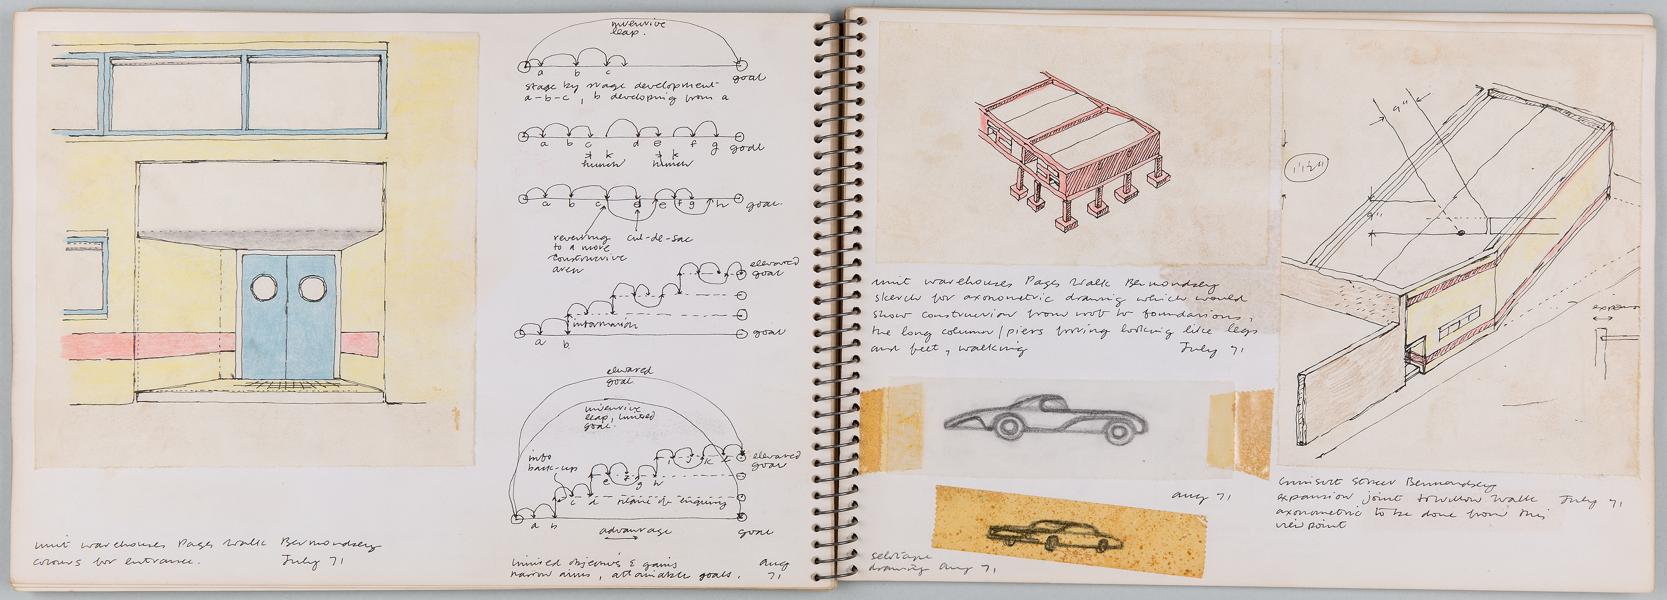 unit warehouses Pages Walk Bermondsey
colours for entrance. July 71
inventive
leap.
a b c goal
stage by stage development
a-b-c, b developing from a
a b c d e f g goal
hunch hunch
a b c d e f g h goal.
reverting
to a more
constructive
area
cul-de-sac
elevated
goal
information
a b goal
elevated
goal
inventive
leap, limited
goal.
info
back-up
elevated
goal
a b c d e f g h i j k
plane of enquiry
goal
advantage
limited objectives & gains aug
narrow aims, attainable goals. 71
unit warehouses Pages Walk Bermondsey
sketch for axonometric drawing which would
show construction from roof to foundations,
the long column/piers proving looking like legs
and feet, walking July 71
aug 71
sellotape
drawing aug 71
9"
1 1/2"
9"
Street Bermondsey
expansion joint to Willow Walk July 71
axonometric to be done from this
viewpoint